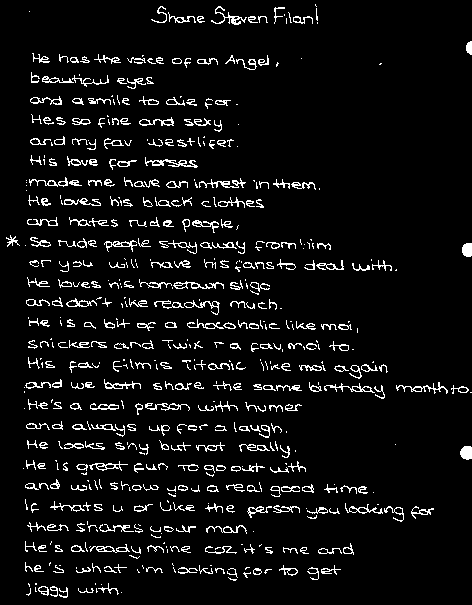 Shane Steven Filan!
He has the voice of an Angel,
beautiful eyes
and a smile to die for.
He's so fine and sexy
and my fav westlifer.
His love for horses
made me have an intrest in them.
He loves his black clothes
and hates rude people,
* So rude people stay away from him
or you will have his fans to deal with.
He loves his hometown sligo
and don't like reading much.
He is a bit of a chocoholic like moi,
snickers and Twix r a fav, moi to.
His fav film is Titanic like moi again
and we both share the same birthday month to.
He's a cool person with humer
and always up for a laugh.
He looks shy but not really.
He is great fun to go out with
and will show you a real good time.
If thats u or like the person you looking for
then shanes your man.
He's already mine coz it's me and
he's what i'm looking for to get
Jiggy with.